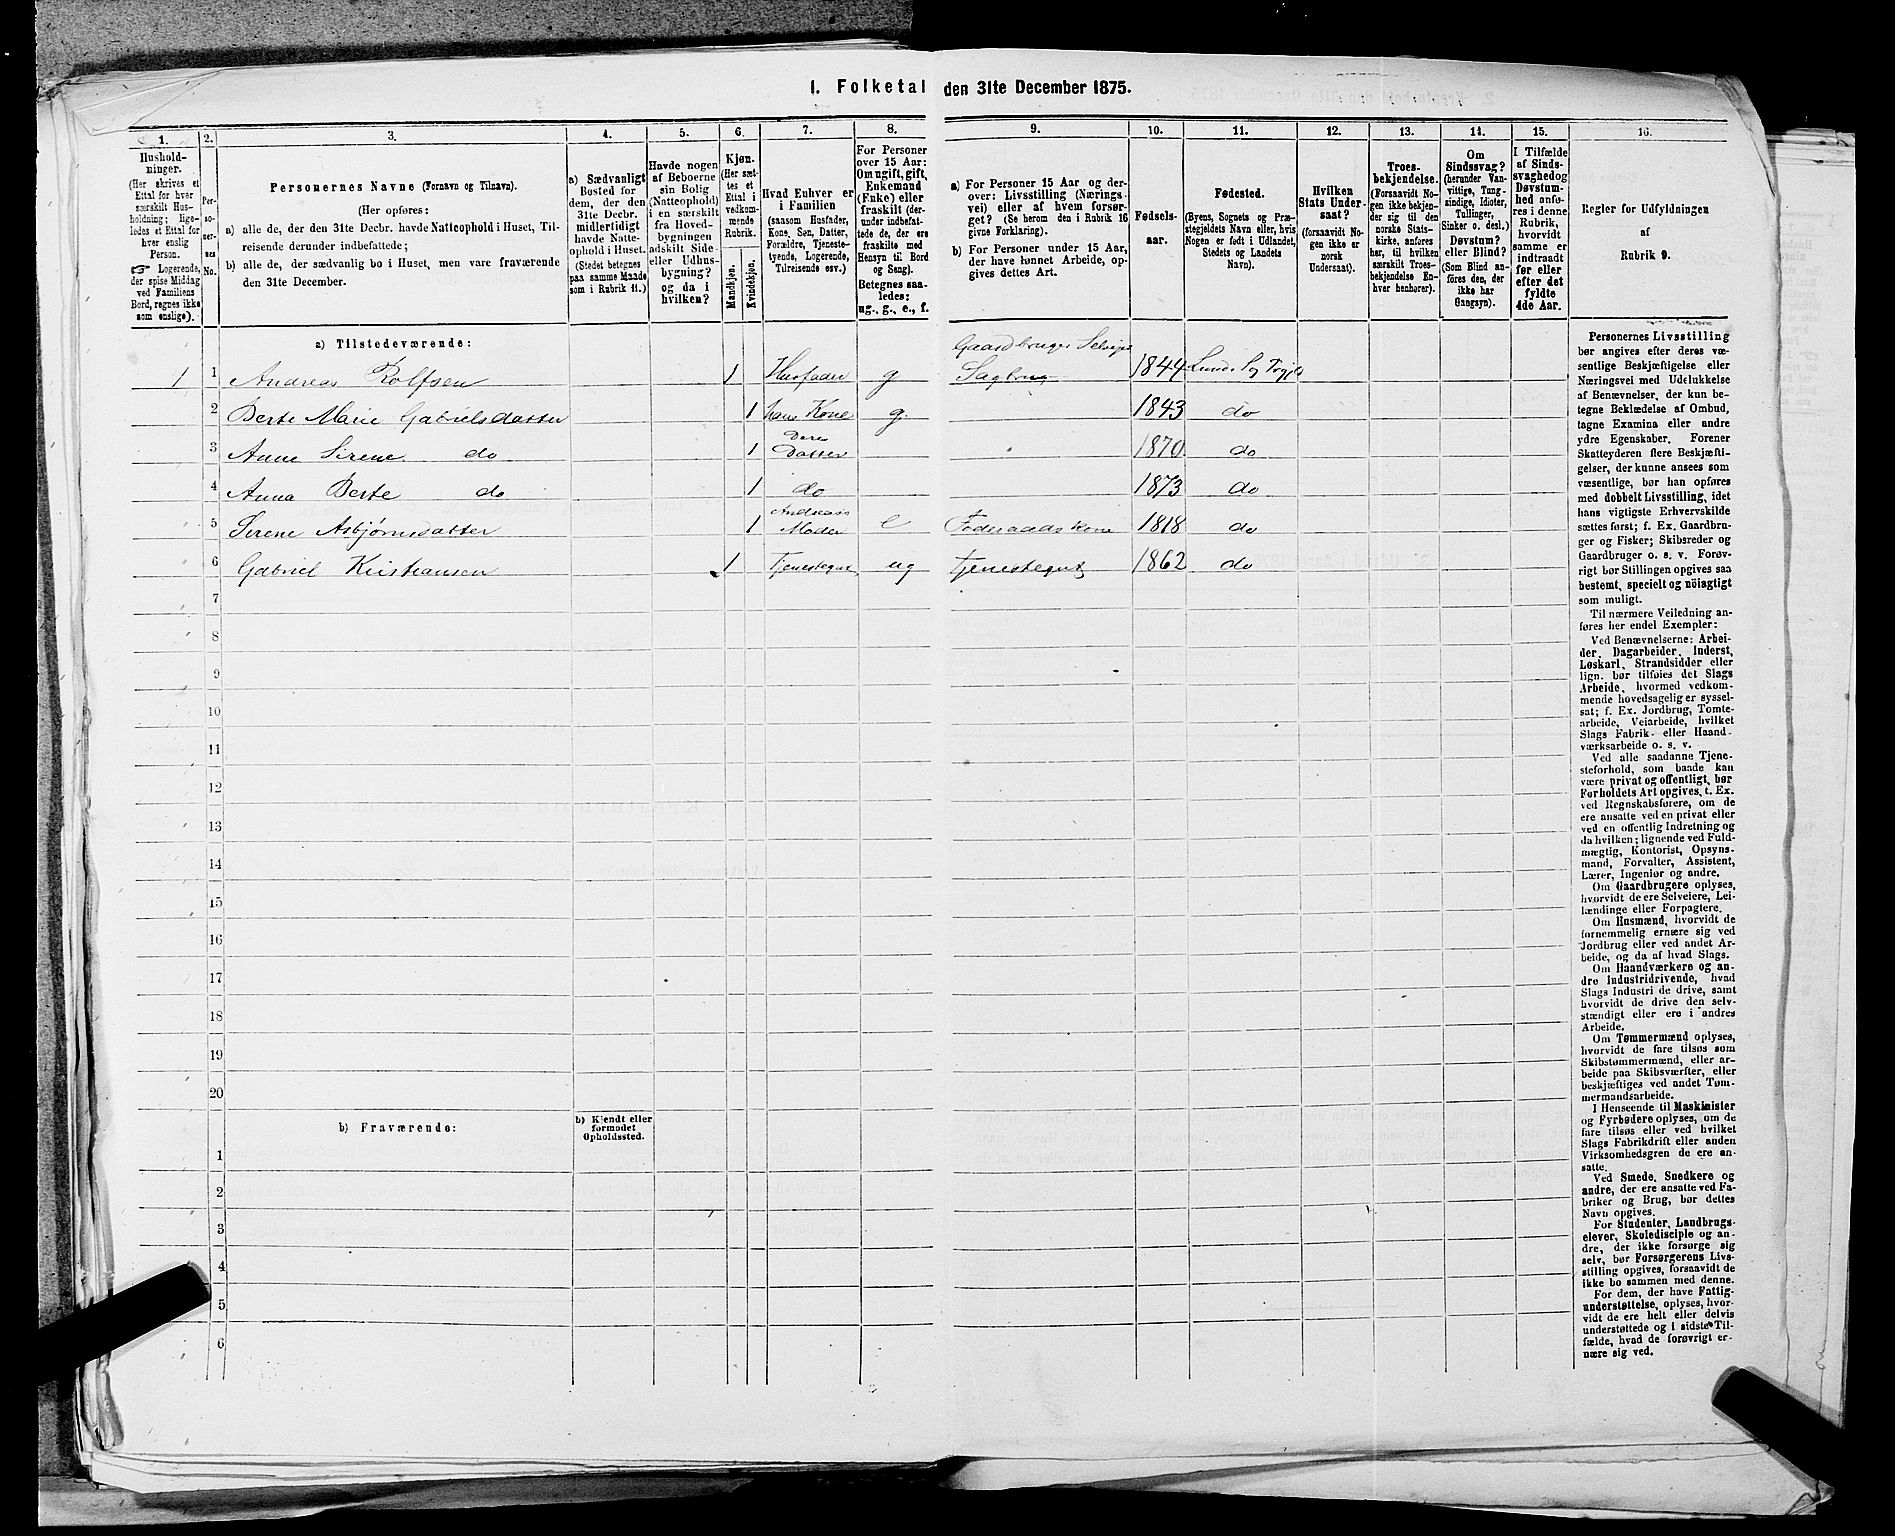 1. Folketal den 31te December 1875.
1.
2.
3.
4.
5.
6.
7.
8.
9.
10.
11.
12.
13.
14.
15.
16.
Hushold-
ninger.
(Her skrives et
Ettal for hver
særskilt Hus-
holdning; lige-
ledes et Ettal for
hver enslig
Person.
☞ Logerende,
der spise Middag
ved Familiens
Bord, regnes ikke
som enslige).
Per-
so-
ner-
nes
No.
Personernes Navne (Fornavn og Tilnavn).
(Her opføres:
a) alle de, der den 31te Decbr. havde Natteophold i Huset, Til-
reisende derunder indbefattede;
b) alle de, der sædvanlig bo i Huset, men vare fraværende
den 31te December.
a) Sædvanligt
Bosted for
dem, der den
31te Decbr.
midlertidigt
havde Natte-
ophold i Huset.
(Stedet betegnes
paa samme Maade
som i Rubrik 11.)
Havde nogen
af Beboerne
sin Bolig
(Natteophold)
i en særskilt
fra Hoved-
bygningen
adskilt Side-
eller Udhus-
bygning?
og da i
hvilken?
Kjøn.
(Her sæt-
tes et
Ettal i
vedkom-
mende
Rubrik.
Mandkjøn.
Kvindekjøn.
Hvad Enhver er
i Familien
(saasom Husfader,
Kone, Søn, Datter,
Forældre, Tjeneste-
tyende, Logerende,
Tilreisende osv.)
For Personer
over 15 Aar:
Om ugift, gift,
Enkemand
(Enke) eller
fraskilt (der-
under indbefat-
tede de, der ere
fraskilte med
Hensyn til Bord
og Seng).
Betegnes saa-
ledes:
ug., g., e., f.
a) For Personer 15 Aar og der-
over: Livsstilling (Nærings-
vei) eller af hvem forsør-
get? (Se herom den i Rubrik 16
givne Forklaring).
b) For Personer under 15 Aar,
der have lønnet Arbeide, op-
gives dettes Art.
Fødsels-
aar.
Fødested.
(Byens, Sognets og Præ-
stegjeldets Navn eller, hvis
Nogen er født i Udlandet,
Stedets og Landets
Navn).
Hvilken
Stats Under-
saat?
(forsaavidt No-
gen ikke er
norsk
Undersaat).
Troes-
bekjendelse.
(Forsaavidt No-
gen ikke bekjen-
der sig til den
norske Stats-
kirke, anføres
her, til hvilken
særskilt Troes-
bekjendelse En-
hver henhører).
Om
Sindssvag?
(herunder Van-
vittige, Tung-
sindige, Idioter,
Tullinger,
Sinker o. desl.)
Døvstum?
eller Blind?
(Som Blind an-
føres den, der
ikke har
Gangsyn).
I Tilfælde
af Sinds-
svaghedog
Døvstum-
hed anfø-
res i denne
Rubrik,
hvorvidt
samme er
indtraadt
før eller
efter det
fyldte
4de Aar.
Regler for Udfyldningen
af
Rubrik 9.
a) Tilstedeværende:
1 1 Andreas Rolfsen 1 Husfader g Gaardbruger Selveje 1844
2 Berte Marie Gabrielsdatter 1 hans Kone g. 1843 do
3 Anne Sirene do 1 deres Datter 1870 do
4 Anna Berte do 1 do 1873 do
5 Sirene Asbjørnsdatter 1 Andreass Moder e Føderaadskone 1818 do
6 Gabriel Kristiansen 1 Tjenestegut ug Tjenestegut 1862 do
7
8
9
10
11
12
13
14
15
16
17
18
19
20
b) Fraværende:
b) Kjendt eller
formodet
Opholdssted.
1
2
3
4
5
6
Personernes Livsstilling
bør angives efter deres væ-
sentlige Beskjæftigelse eller
Næringsvei med Udelukkelse
af Benævnelser, der kun be-
tegne Beklædelse af Ombud,
tagne Examina eller andre
ydre Egenskaber. Forener
Skatteyderen flere Beskjæfti-
gelser, der kunne ansees som
væsentlige, bør han opføres
med dobbelt Livsstilling, idet
hans vigtigste Erhvervskilde
sættes først; f. Ex. Gaardbru-
ger og Fisker; Skibsreder og
Gaardbruger o. s. v. Forøv-
rigt bør Stillingen opgives saa
bestemt, specielt og nöiagtigt
som muligt.
Til nærmere Veiledning an-
føres her endel Exempler:
Ved Benævnelserne: Arbei-
der, Dagarbeider, Inderst,
Løskarl, Strandsidder eller
lign. bør tilføies det Slags
Arbeide, hvormed vedkom-
mende hovedsagelig er syssel-
sat; f. Ex. Jordbrug, Tomte-
arbeide, Veiarbeide, hvilket
Slags Fabrik- eller Haand-
værksarbeide o. s. v.
Ved alle saadanne Tjene-
steforhold, som baade kan
være privat og offentligt, bør
Forholdets Art opgives, t. Ex.
ved Regnskabsførere, om de
ere ansatte ved en privat eller
ved en offentlig Indretning og
da hvilken; lignende ved Fuld-
mægtig, Kontorist, Opsyns-
mand, Forvalter, Assistent,
Lærer, Ingeniør og andre.
Om Gaardbrugere oplyses,
hvorvidt de ere Selveiere, Lei-
lændinge eller Forpagtere.
Om Husmænd, hvorvidt de
fornemmelig ernære sig ved
Jordbrug eller ved andet Ar-
beide, og da af hvad Slags.
Om Haandværkere og an-
dre Industridrivende, hvad
Slags Industri de drive, samt
hvorvidt de drive den selv-
stændigt eller ere i andres
Arbeide.
Om Tømmermænd oplyses,
hvorvidt de fare tilsøs som
Skibstømmermænd, eller ar-
beide paa Skibsværfter, eller
beskjæftiges ved andet Tøm-
mermandsarbeide.
I Henseende til Maskinister
og Fyrbødere oplyses, om de
fare tilsøs eller ved hvilket
Slags Fabrikdrift eller anden
Virksomhedsgren de ere an-
satte.
Ved Smede, Snedkere og
andre, der ere ansatte ved Fa-
briker og Brug, bør dettes
Navn opgives.
For Studenter, Landbrugs-
elever, Skoledisciple og an-
dre, der ikke forsørge sig
selv, bør Forsørgerens Livs-
stilling opgives, forsaavidt de
ikke bo sammen med denne.
For dem, der have Fattig-
understøttelse, oplyses, hvor-
vidt de ere helt eller delvis
understøttede og i sidste Til-
fælde, hvad de forøvrigt er-
nære sig ved.